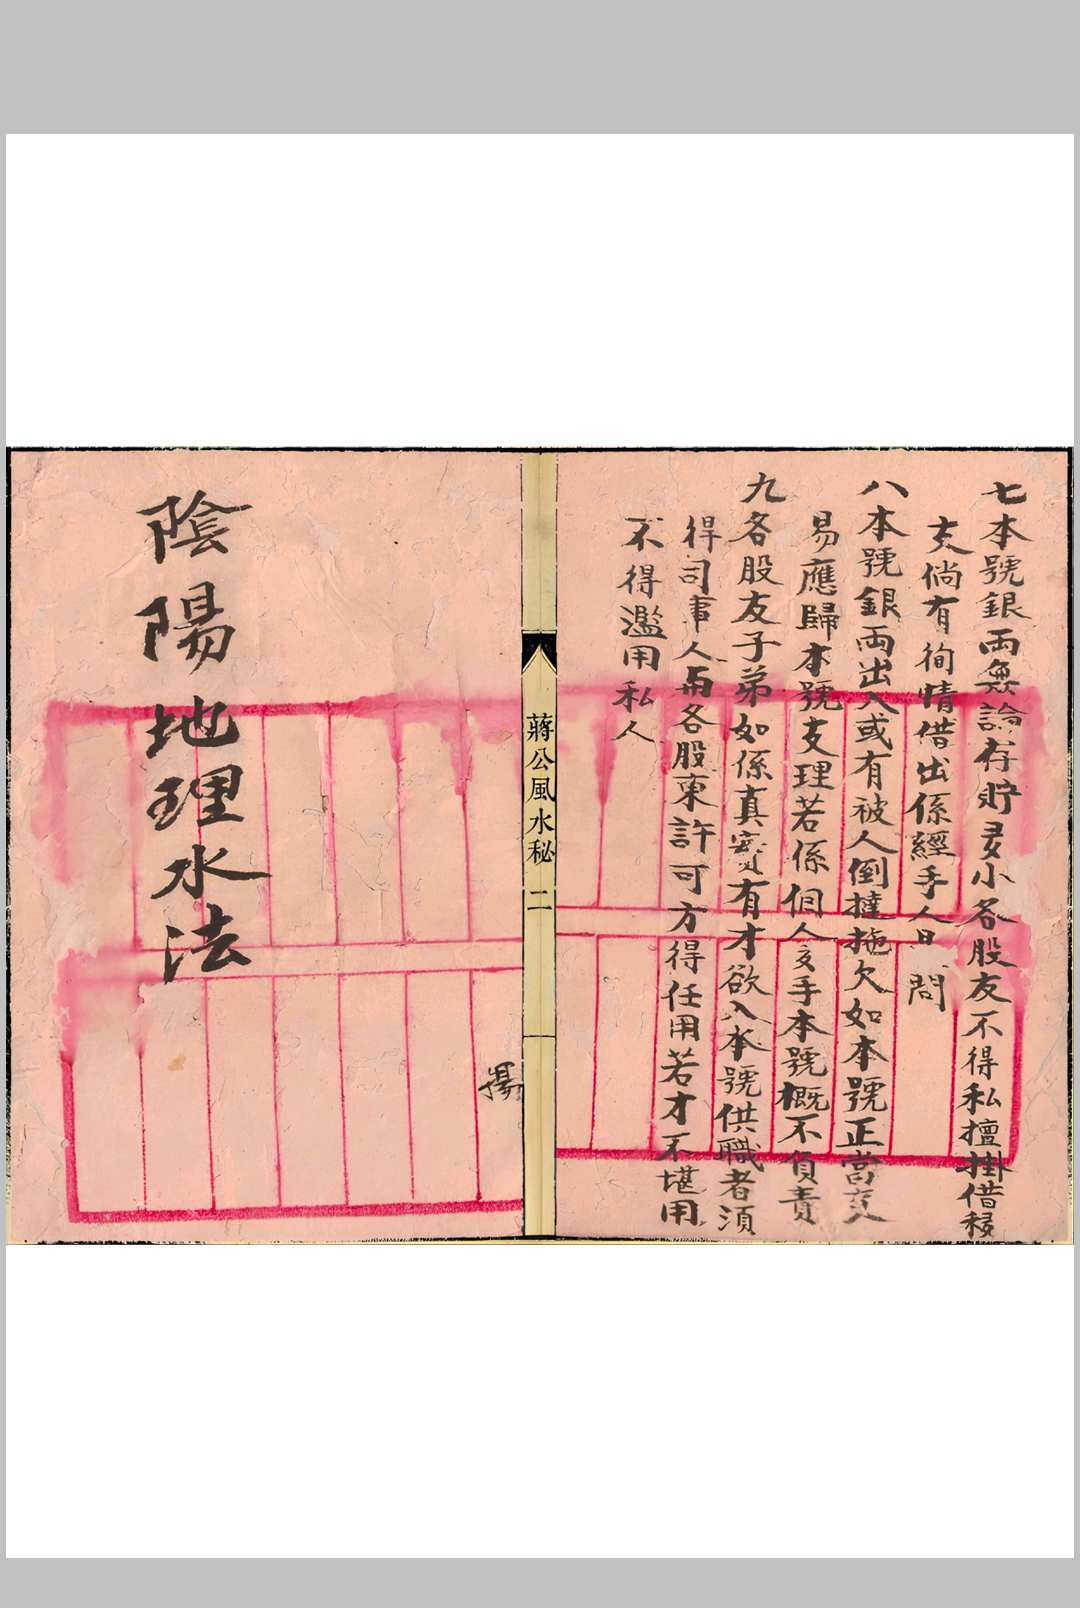 七本號銀両無論存貯多小各股友不得私擅掛借移
支倘有徇情借出係經手人日 問
八本號銀両出入或有被人倒撻拖欠如本號正當交
易應歸本號支理若係個人交手本號概不負責
九各股友子弟如係真實有才欲入本號供職者須
得司事人而各股東許可方得任用若才不堪用
不得濫用私人
蔣公風水秘 二
揚
陰陽地理水法